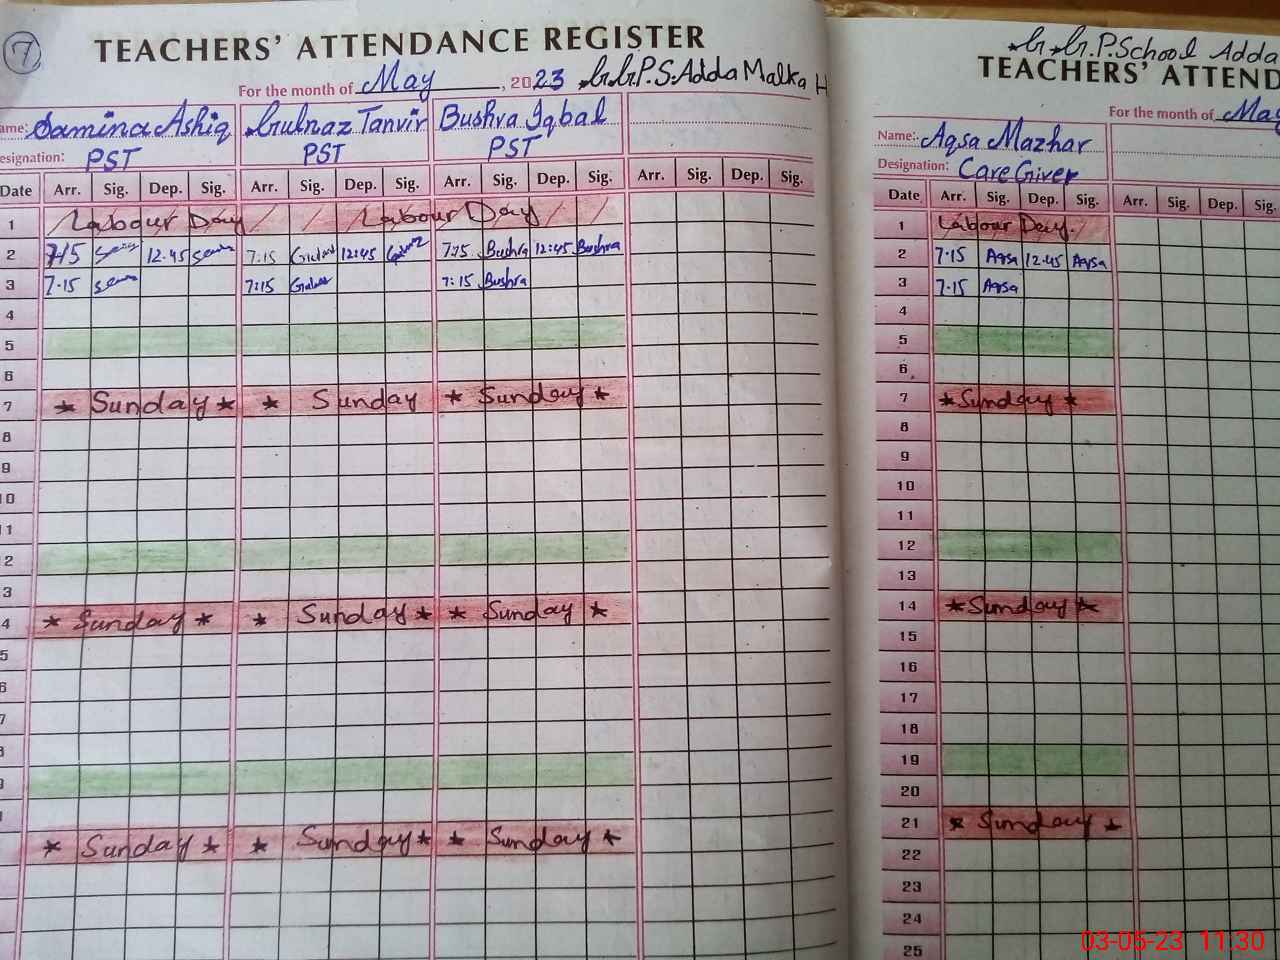 7
TEACHERS' ATTENDANCE REGISTER
For the month of May, 2023 G.G.P.S. Adda Malka H
ame: Samina Ashiq Gulnaz Tanvir Bushra Iqbal
esignation: PST PST PST
Date Arr. Sig. Dep. Sig. Arr. Sig. Dep. Sig. Arr. Sig. Dep. Sig. Arr. Sig. Dep. Sig.
1 Labour Day Labour Day
2 7:15 12:45 7:15 12:45 7:15 Bushra 12:45 Bushra
3 7:15 7:15 7:15 Bushra
4
5
6
7 * Sunday * * Sunday * Sunday *
8
9
10
11
2
3
4 * Sunday * * Sunday * * Sunday *
5
6
7
* Sunday * * Sunday * * Sunday *
G.G.P. School Adda
TEACHERS' ATTEND
For the month of May
Name: Aqsa Mazhar
Designation: Care Giver
Date Arr. Sig. Dep. Sig. Arr. Sig. Dep. Sig.
1 Labour Day.
2 7:15 Aqsa 12:45 Aqsa
3 7:15 Aqsa
4
5
6
7 * Sunday *
8
9
10
11
12
13
14 * Sunday *
15
16
17
18
19
20
21 * Sunday *
22
23
24
25
03-05-23 11:30